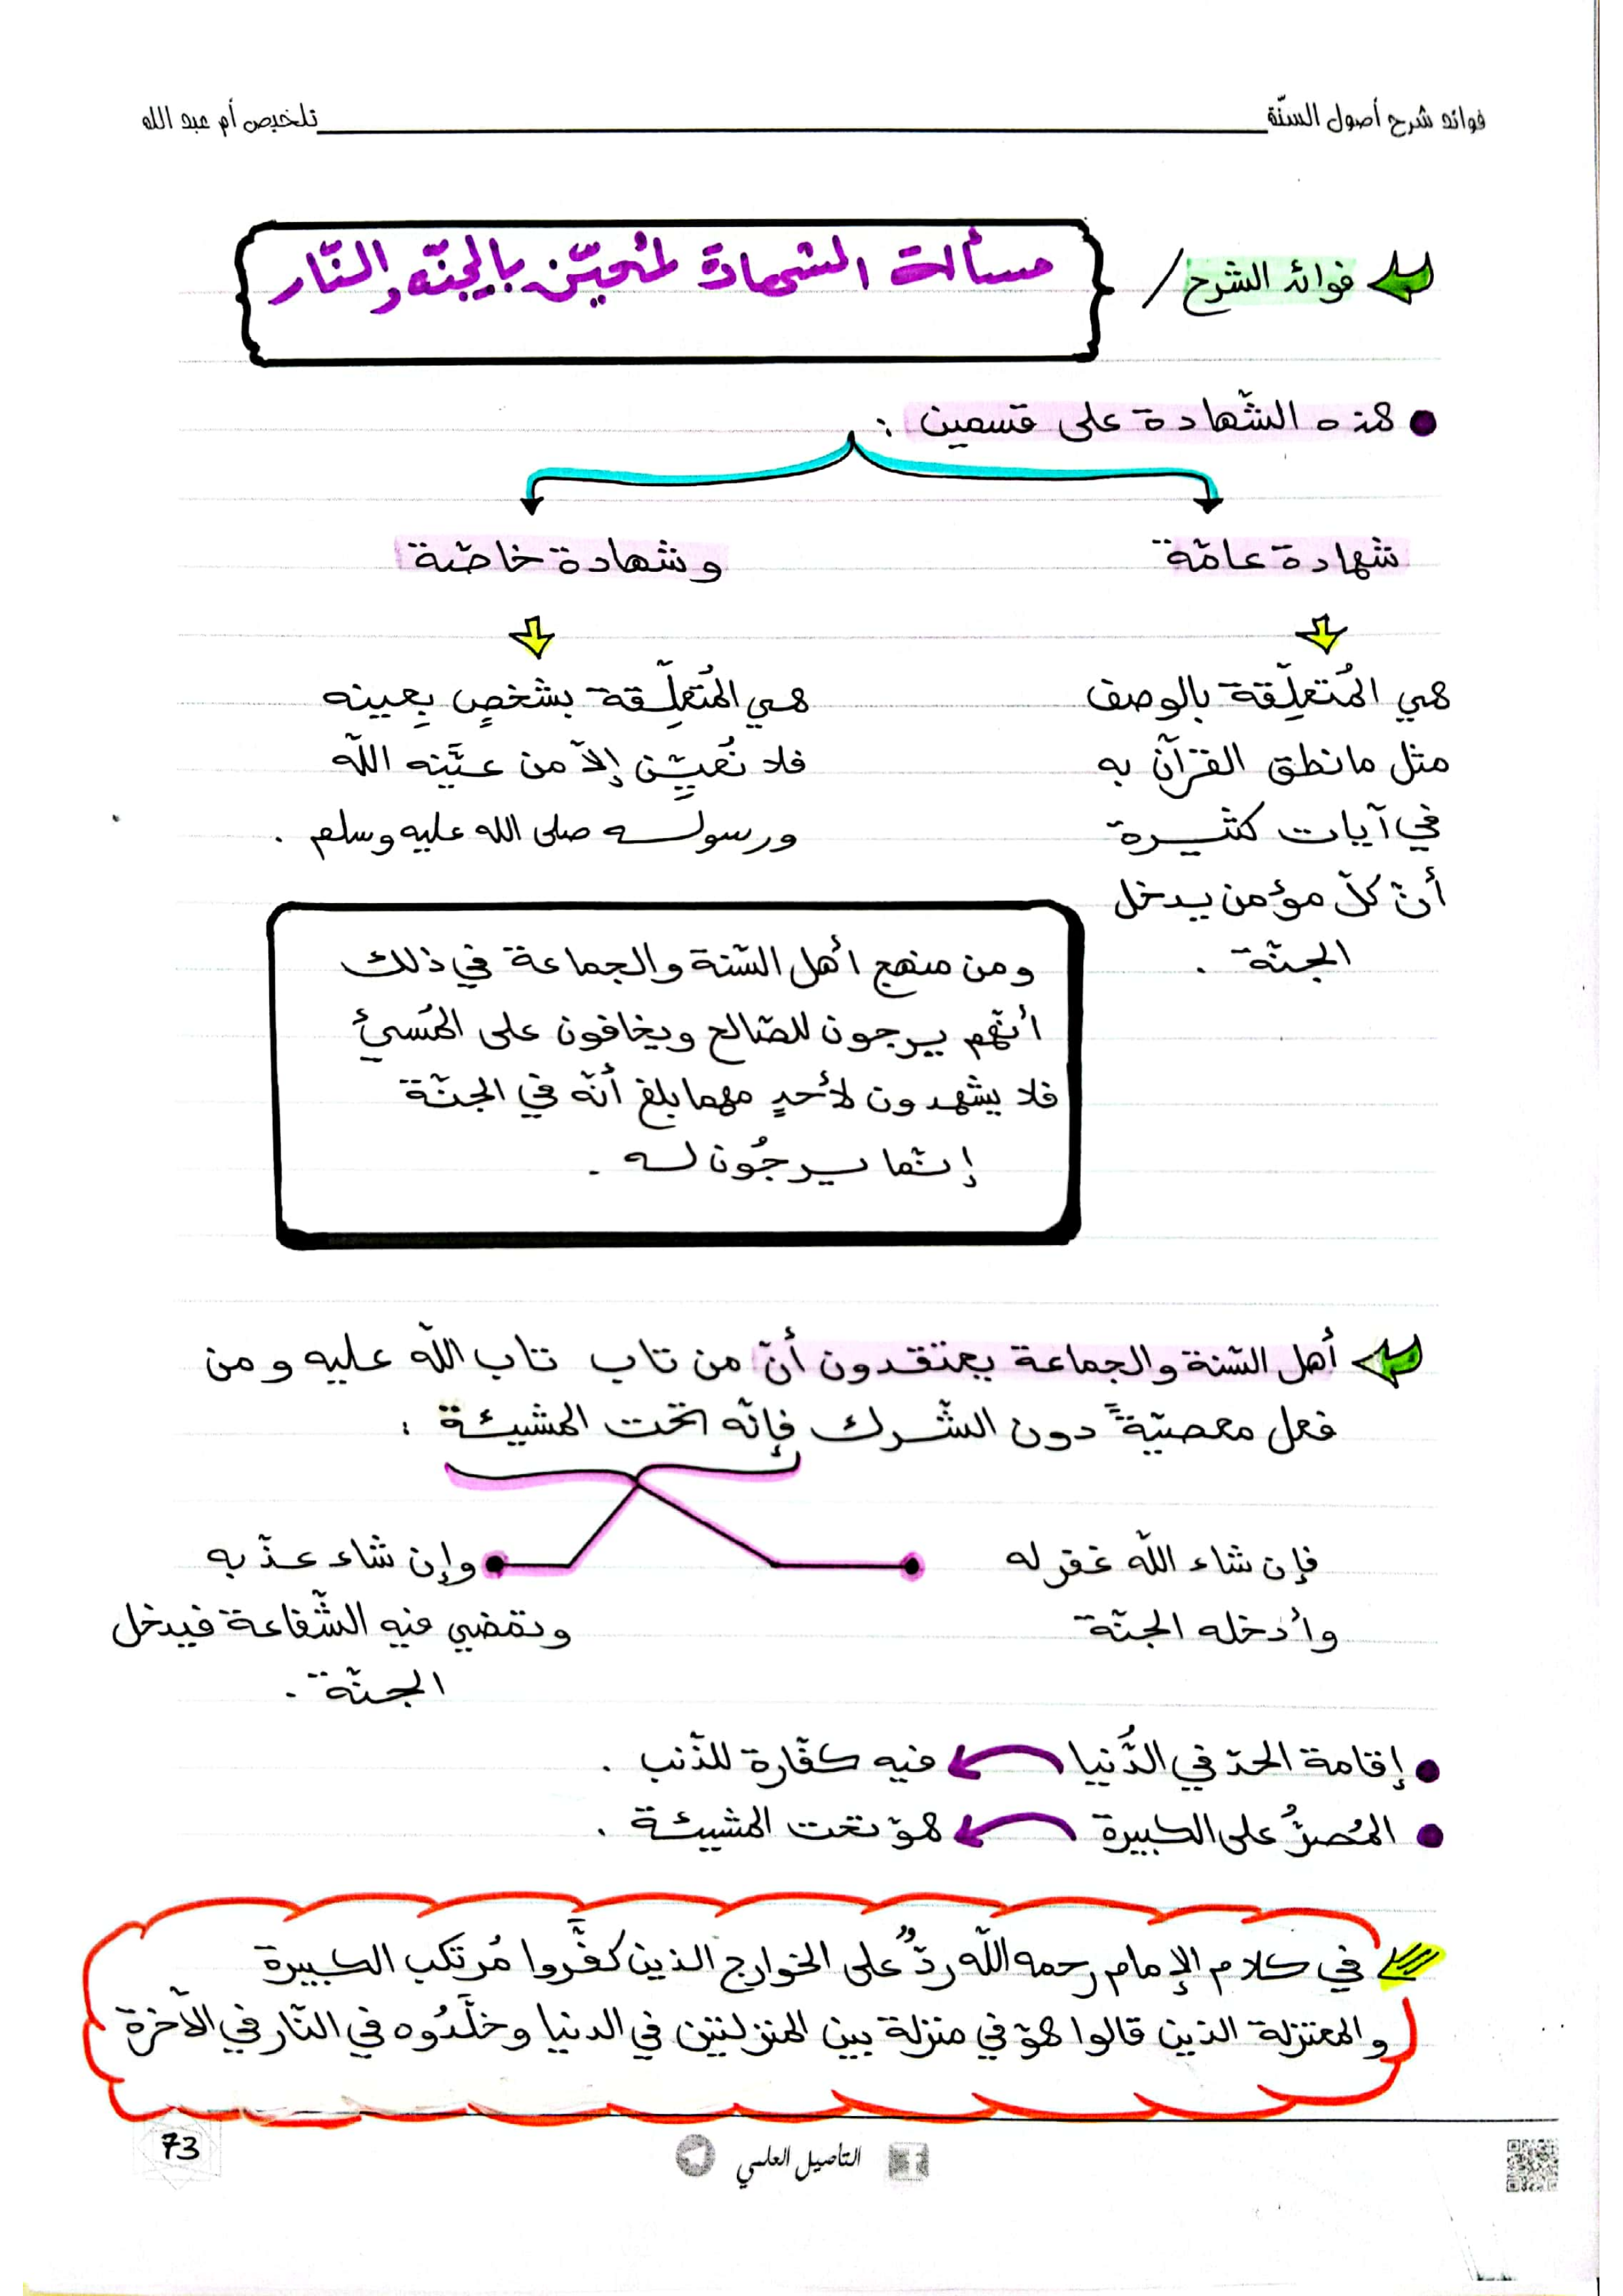 فوائد شرح أصول السنّة
تلخيص أم عبد الله
فوائد الشرح /
مسألة الشهادة لمُعيّن بالجنّة والنّار
هذه الشّهادة على قسمين :
شهادة عامّة
وشهادة خاصّة
هي المُتعلِّقة بالوصف
مثل ما نطق القرآن به
في آيات كثيرة
أنّ كلّ مؤمن يدخل
الجنّة .
هي المُتعلِّقة بشخصٍ بِعينه
فلا نُعيِّن إلاّ من عيَّنه اللّه
ورسوله صلى الله عليه وسلم .
ومن منهج أهل السّنة والجماعة في ذلك
أنّهم يرجون للصّالح ويخافون على المُسيئ
فلا يشهدون لأحدٍ مهما بلغ أنّه في الجنّة
إنّما يرجُون له .
أهل السّنة والجماعة يعتقدون أنّ من تاب تاب اللّه عليه ومن
فعل معصيّةً دون الشّرك فإنّه تحت المشيئة :
فإن شاء اللّه غفر له
وأدخله الجنّة
وإن شاء عذّبه
وتمضي فيه الشّفاعة فيدخل
الجنّة .
إقامة الحدّ في الدُّنيا فيه كفّارة للذّنب .
المُصرُّ على الكبيرة هو تحت المشيئة .
في كلام الإمام رحمه اللّه ردٌّ على الخوارج الذين كفَّروا مُرتكب الكبيرة
والمعتزلة الذين قالوا هو في منزلة بين المنزلتين في الدنيا وخلَّدُوه في النّار في الآخرة
التأصيل العلمي
73